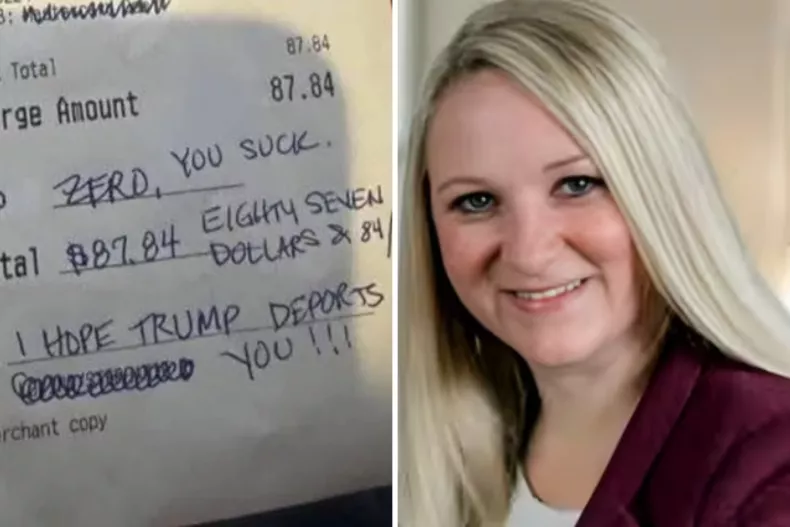 Total 87.84
rge Amount 87.84
ZERO, YOU SUCK.
tal $87.84 EIGHTY SEVEN
DOLLARS & 84/
I HOPE TRUMP DEPORTS
YOU!!!
rchant copy